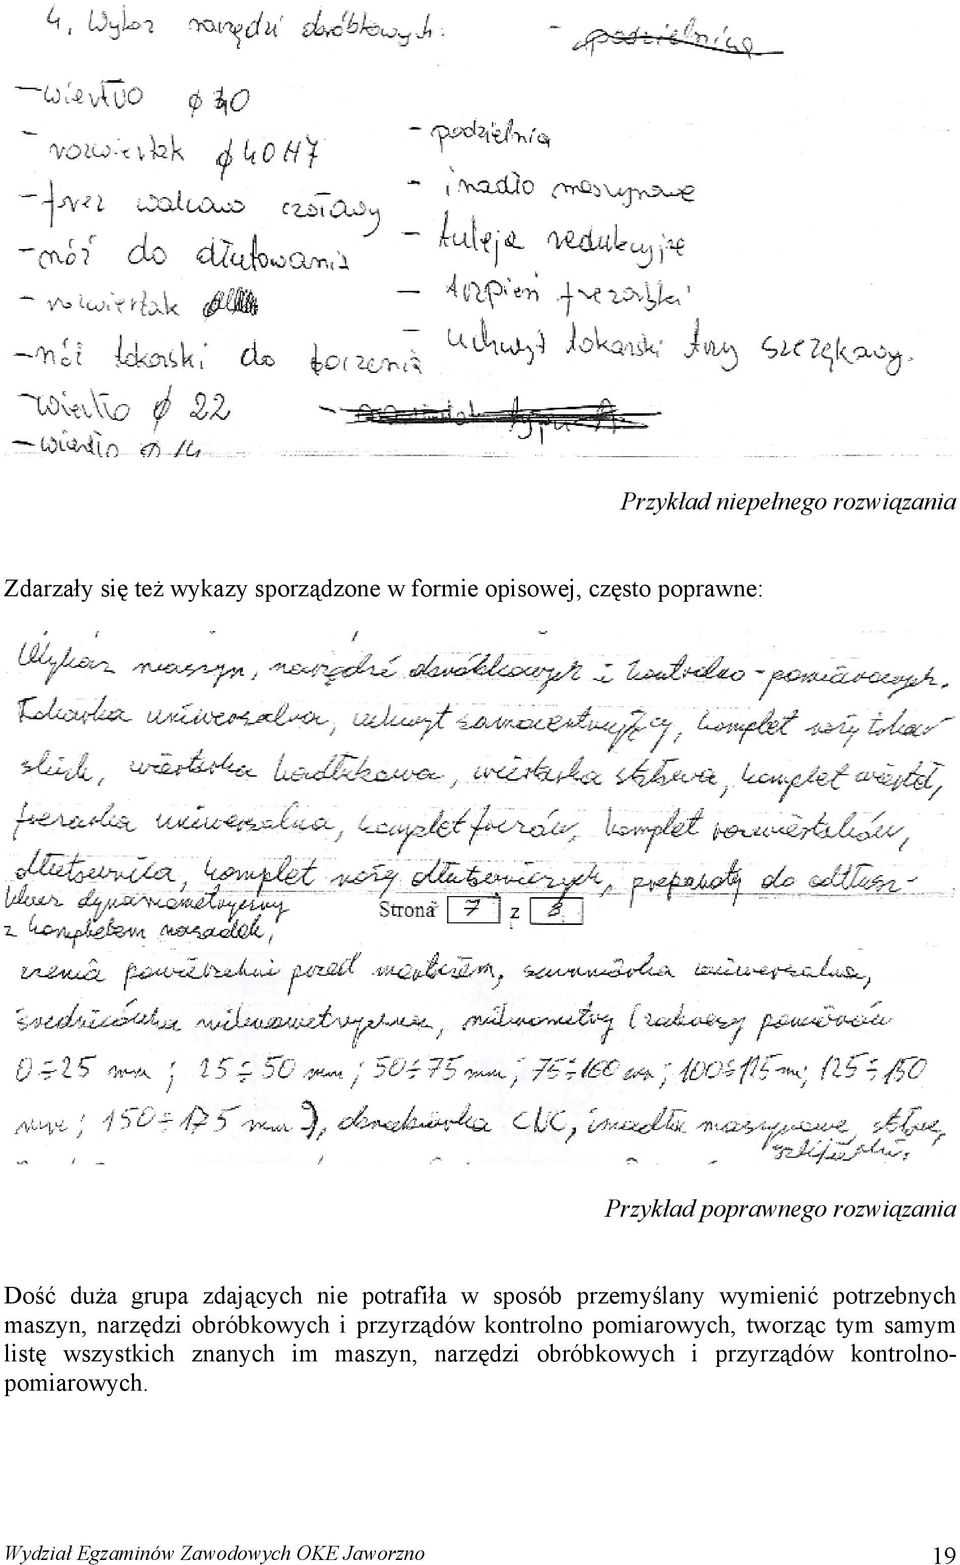 4. Wykaz narzędzi obróbkowych:
- podzielnica
- wiertło φ 40
- rozwiertak φ 40 H7
- frez walcowo czołowy
- nóż do dłutowania
- rozwiertak
- nóż tokarski do toczenia
- wiertło φ 22
- wiertło φ 14
- podzielnia
- imadło maszynowe
- tuleja redukcyjne
- trzpień frezarski
- uchwyt tokarski trzy szczękowy.
Przykład niepełnego rozwiązania
Zdarzały się też wykazy sporządzone w formie opisowej, często poprawne:
Wykaz maszyn, narzędzi obróbkowych i kontrolno-pomiarowych.
Tokarka uniwersalna, uchwyt samocentrujący, komplet noży tokar
skich, wiertarka kadłubowa, wiertarka stołowa, komplet wierteł,
frezarka uniwersalna, komplet frezów, komplet rozwiertaków,
dłutownica, komplet noży dłutowniczych, preparaty do odtłusz-
klucz dynamometryczny
z kompletem nasadek,
Strona 7 z 8
czenia powierzchni przed montażem, suwmiarka uniwersalna,
średnicówka mikrometryczna, mikrometry (zakresy pomiarów
0÷25 mm; 25÷50 mm; 50÷75 mm; 75÷100 mm; 100÷125 mm; 125÷150
mm; 150÷175 mm), obrabiarka CNC, imadła maszynowe, stołowe,
szlifierki.
Przykład poprawnego rozwiązania
Dość duża grupa zdających nie potrafiła w sposób przemyślany wymienić potrzebnych
maszyn, narzędzi obróbkowych i przyrządów kontrolno pomiarowych, tworząc tym samym
listę wszystkich znanych im maszyn, narzędzi obróbkowych i przyrządów kontrolno-
pomiarowych.
Wydział Egzaminów Zawodowych OKE Jaworzno 19